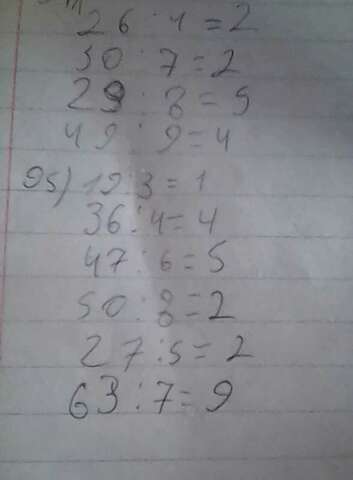 26 : 4 = 2
30 : 7 = 2
29 : 8 = 5
49 : 9 = 4
95) 19:3 = 1
36:4 = 4
47:6 = 5
50:8 = 2
27:5 = 2
63:7 = 9